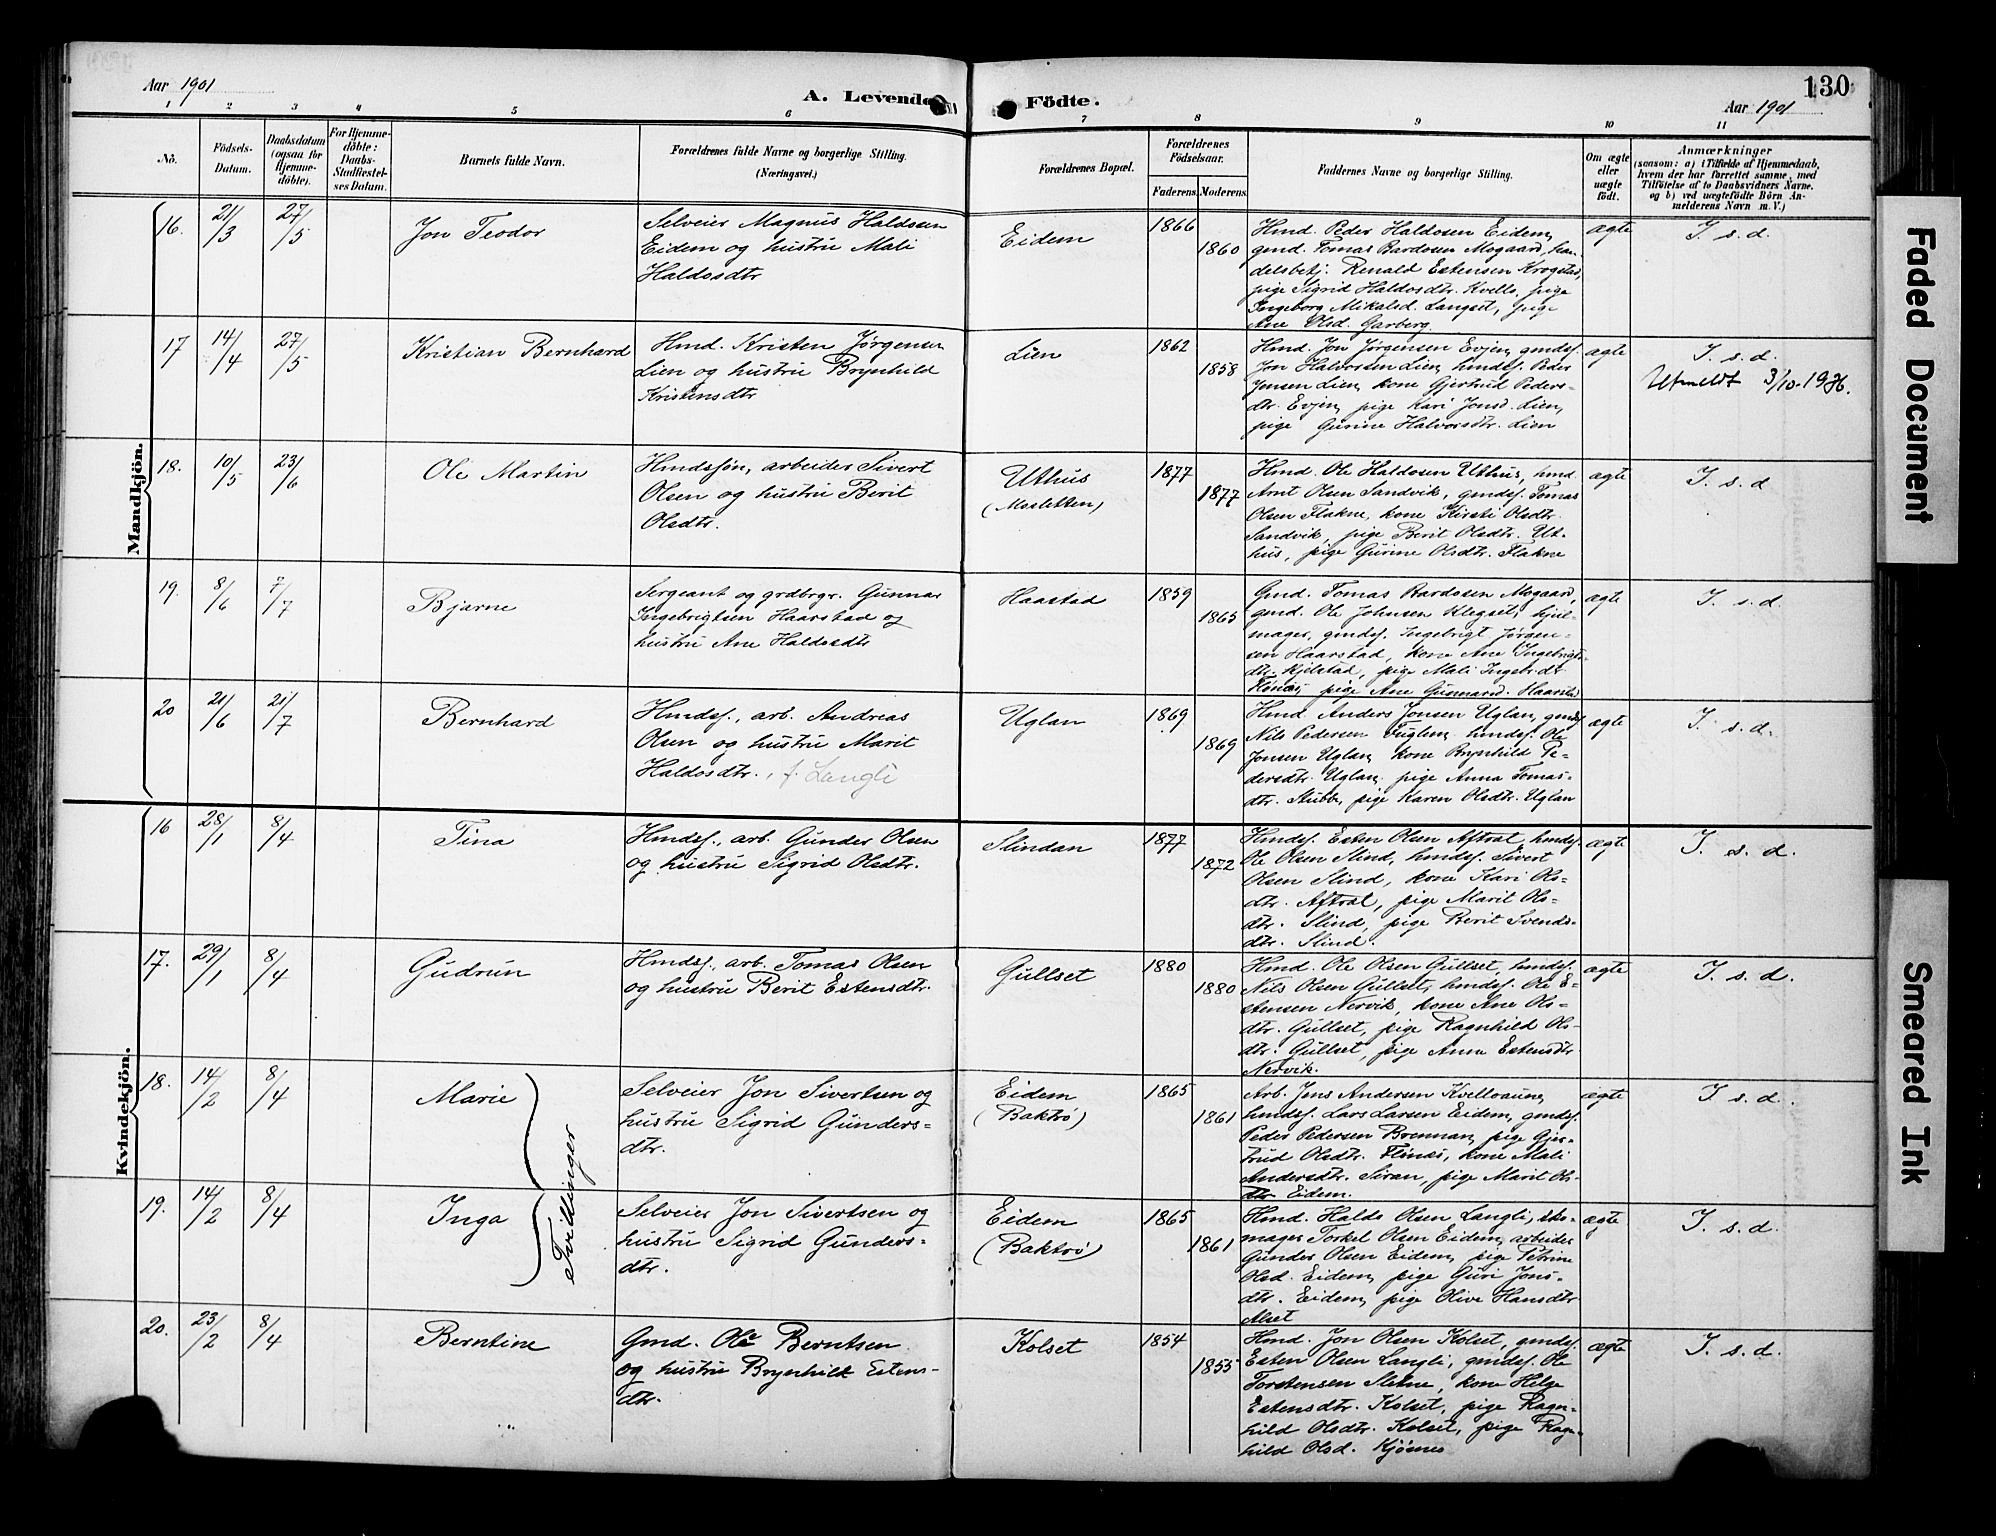 130
Aar 1901
A. Levende Födte.
Aar 1901
1 2 3 4 5 6 7 8 9 10 11
No.
Födsels-
Datum.
Daabsdatum
(ogsaa for
Hjemme-
döbte).
For Hjemme-
döbte:
Daabs-
Stadfæstel-
ses Datum.
Barnets fulde Navn.
Forældrenes fulde Navne og borgerlige Stilling.
(Næringsvei.)
Forældrenes Bopæl.
Forældrenes
Födselsaar.
Faderens. Moderens.
Faddernes Navne og borgerlige Stilling.
Om ægte
eller
uægte
födt.
Anmærkninger
(saasom: a) i Tilfælde af Hjemmedaab,
hvem der har forrettet samme, med
Tilföielse af to Daabsvidners Navne.
og b) ved uægtefödte Börn An-
melderens Navn m. V.)
Mandkjön.
16. 21/3 27/5
Jon Teodor
Selveier Magnus Haldosen
Eidem og hustru Mali
Haldosdtr
Eidem
1866
1860
Gmd. Peder Haldosen Eidem,
gmd. Tomas Bardosen Mogaard, han-
delsbetj. Renald Estensen Krogstad,
pige Sigrid Haldosdtr. Kvello, pige
Ingeborg Mikalsd. Langset, pige
Ane Olsd. Garberg.
ægte
I. s. d.
17 14/4 27/5
Kristian Bernhard
Hmd. Kristen Jørgensen
Lien og hustru Brynhild
Kristensdtr
Lien
1862
1858
Hmd. Jon Jørgensen Evjen, gmdsf.
Jon Halvorsen Lien, hmdsf. Peder
Jonsen Lien, kone Gjertrud Peders-
dtr. Evjen, pige Kari Jonsd. Lien,
pige Gurine Halvorsdtr. Lien
ægte
I. s. d.
Utmeldt 3/10-1936.
18. 10/5 23/6
Ole Martin
Hmdssøn, arbeider Sivert
Olsen og hustru Berit
Olsdtr.
Uthus
(Mosletten)
1877
1877
Hmd. Ole Haldosen Uthus, hmd.
Arnt Olsen Sandvik, gmdsf. Tomas
Olsen Flakne, kone Kirsti Olsdtr.
Sandvik, pige Berit Olsdtr. Ut-
hus, pige Gurine Olsdtr. Flakne
ægte
I. s. d
19. 8/6 7/7
Bjarne
Sergeant og grdbrgr. Gunnar
Ingebrigtsen Haarstad og
hustru Ane Haldosdtr
Haastad
1859
1865
Gmd. Tomas Bardosen Mogaard,
gmd. Ole Johnsen Klegset, hjul-
mager, gmdsf. Ingebrigt Jørgen-
sen Haarstad, kone Ane Ingebrigts-
dtr. Kjelstad, pige Mali Ingebrdt
pige Ane Gunnarsd. Haarstad
ægte
I. s. d.
20 21/6 21/7
Bernhard
Hmdsf., arb. Andreas
Olsen og hustru Marit
Haldosdtr., f. Langli
Uglan
1869
1869
Hmd. Anders Jonsen Uglan, gmdsf
Nils Pedersen Fuglem, hmdsf. Ole
Jonsen Uglan, kone Brynhild Pe-
dersdtr. Uglan, pige Anna Tomas-
dtr. Stubbe, pige Karen Olsdtr. Uglan
ægte
I. s. d.
Kvindekjön.
16 28/1 8/4
Tina
Hmdsf., arb. Gunder Olsen
og hustru Sigrid Olsdtr.
Slindan
1877
1872
Hmdsf. Esten Olsen Aftret, hmdsf.
Ole Olsen Slind, hmdsf. Sivert
Olsen Slind, kone Kari Ols-
dtr. Aftret, pige Marit Ols-
dtr. Slind, pige Berit Svends-
dtr. Slind.
ægte
I. s. d.
17. 29/1 8/4
Gudrun
Hmdsf., arb. Tomas Olsen
og hustru Berit Estensdtr.
Gullset
1880
1880
Hmd. Ole Olsen Gullset, hmdsf.
Nils Olsen Gullset, hmdsf. Ole E-
stensen Nervik, kone Ane Ols-
dtr. Gullset, pige Ragnhild Ols-
dtr. Gullset, pige Anne Estensdtr.
Nervik.
ægte
I. s. d.
18. 14/2 8/4
Marie
Tvillinger
Selveier Jon Sivertsen og
hustru Sigrid Gunders-
dtr.
Eidem
(Baktrø)
1865
1861
Arb. Jens Andersen Kvelloaune,
hmdsf. Lars Larsen Eidem, gmdsf.
Peder Pedersen Brennan, pige Gjer-
trud Olsdtr. Flinæs, kone Mali
Andersdtr. Siran, pige Marit Ols-
dtr Eidem.
ægte
I. s. d.
19. 14/2 8/4
Inga
Selveier Jon Sivertsen og
hustru Sigrid Gunders-
dtr.
Eidem
(Baktrø)
1865
1861
Hmd. Haldo Olsen Langli, sko-
mager Torkel Olsen Eidem, arbeider
Gunder Olsen Eidem, pige Petrine
Olsd. Eidem, pige Guri Jons-
dtr. Eidem, pige Olive Hansdtr
Alset
ægte
I. s. d.
20. 23/2 8/4
Berntine
Gmd. Ole Berntsen
og hustru Brynhild Estens-
dtr.
Kolset
1854
1855
Hmd. Jon Olsen Kolset, gmdsf.
Esten Olsen Langli, gmdsf. Ole
Torstensen Sletne, kone Helge
Estensdtr. Kolset, pige Ragn-
hild Olsdtr. Kolset, pige Ragn-
hild Olsd. Kjøsnes
ægte
I. s. d.
Faded Document
Smeared Ink